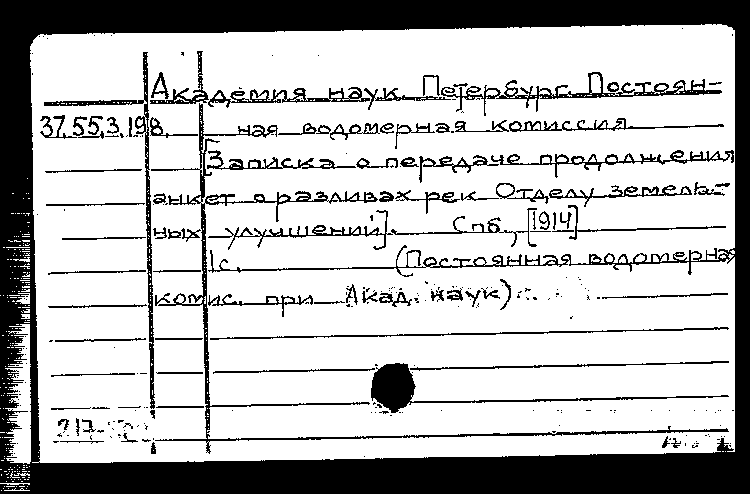 Академия наук. Петербург. Постоян-
37.55.3.198. ная водомерная комиссия.
[Записка о передаче продолжения
анкет о разливах рек Отделу земель-
ных улучшений]. Спб., [1914]
1с. (Постоянная водомерная
комис. при Акад. наук).
217-